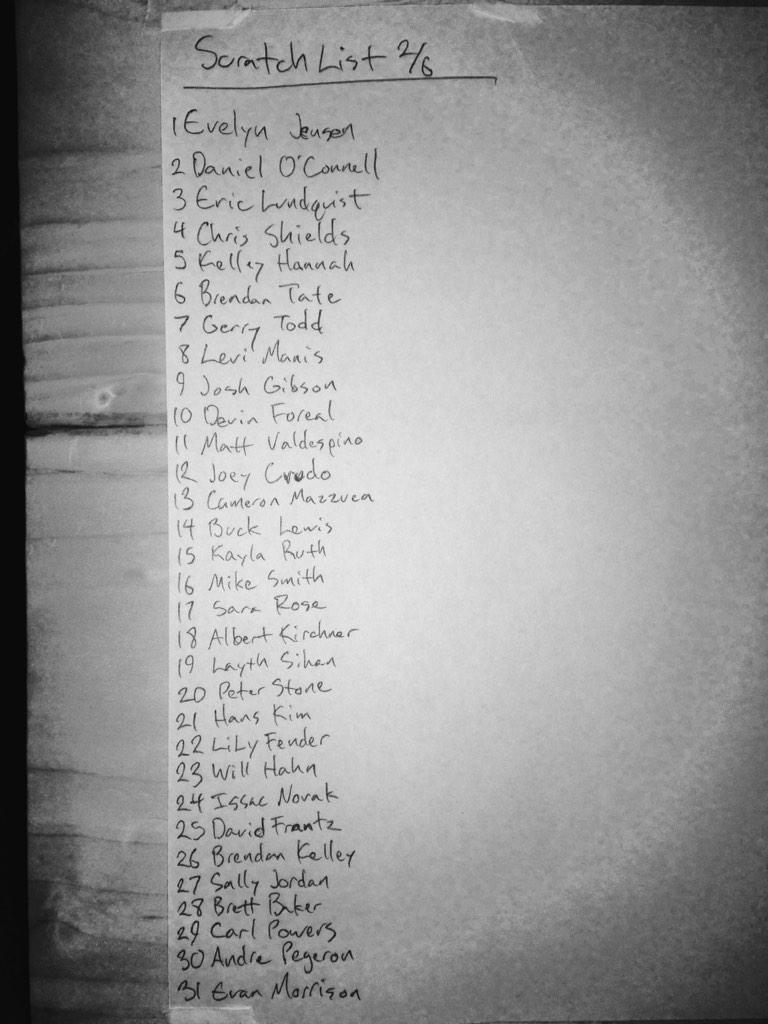 Scratch List 2/6
1 Evelyn Jensen
2 Daniel O'Connell
3 Eric Lundquist
4 Chris Shields
5 Kelley Hannah
6 Brendan Tate
7 Gerry Todd
8 Levi Manis
9 Josh Gibson
10 Devin Foreal
11 Matt Valdespino
12 Joey Credo
13 Cameron Mazzuca
14 Buck Lewis
15 Kayla Ruth
16 Mike Smith
17 Sara Rose
18 Albert Kirchner
19 Layth Sihan
20 Peter Stone
21 Hans Kim
22 LiLy Fender
23 Will Hahn
24 Issac Novak
25 David Frantz
26 Brendan Kelley
27 Sally Jordan
28 Brett Baker
29 Carl Powers
30 Andre Pegeron
31 Evan Morrison